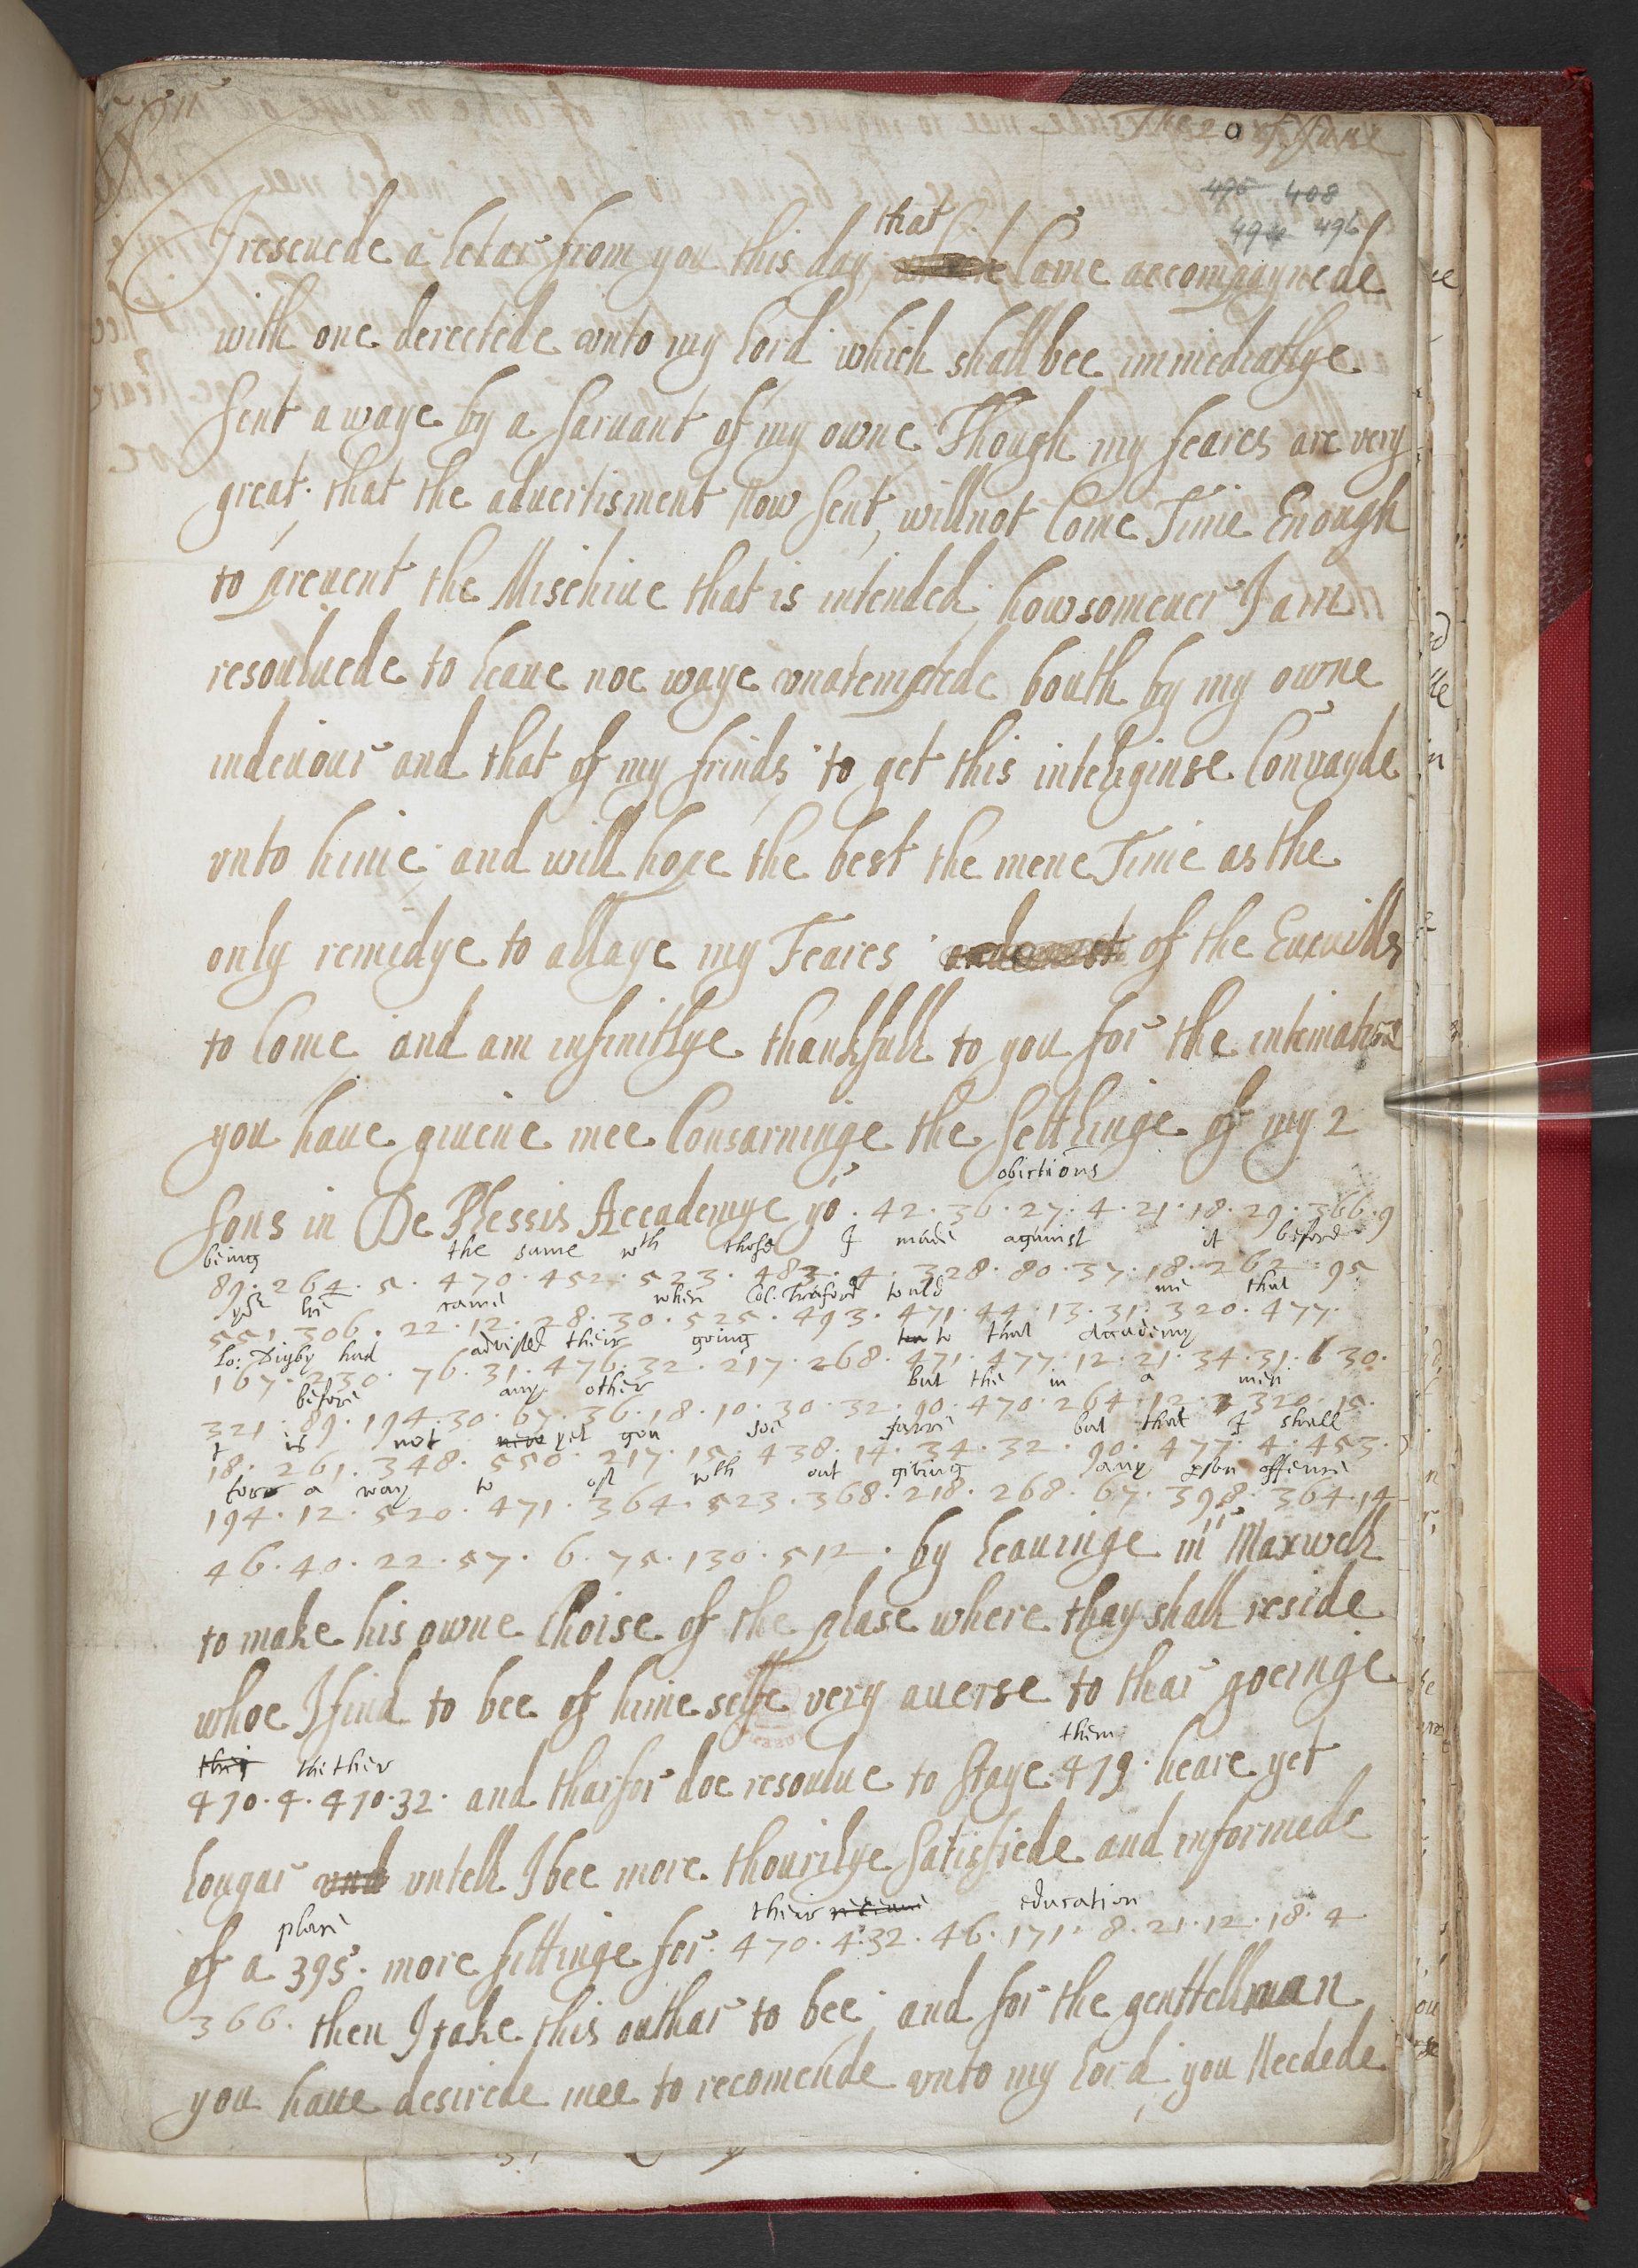 Sir
The 20 of June
495 408
494 496
that
I reseuede a letar from you this day, Came accompaynede
with one derectede vnto my lord which shall bee immediatlye
sent a waye by a saruant of my owne Though my feares are very
great that the aduertisment now sent, will not Come Time Enough
to preuent the Mischiue that is intended, howsomeuer I am
resouluede to leaue noe waye vnatemptede bouth by my owne
indeuour and that of my frinds, to get this inteliginse Conuayde
vnto hime, and will hope the best the mene Time as the
only remidye to allaye my Feares of the Eueuills
to Come and am infinitlye thankfull to you for the intimatione
you haue giuene mee Consarninge the settlinge of my 2
obictions
sons in De Plessis Accademye yo. 42. 36. 27. 4. 21. 18. 29. 366. 9
being the same wth thosse I made against it before
89. 264. 5. 470. 452. 523. 483. 4. 328. 80. 37. 18. 262. 95
yor he came when Col. Traford tould me that
551. 306. 22. 12. 28. 30. 525. 493. 471. 44. 13. 31. 320. 477.
Lo: Digby had advissed their going to that Accademy
167. 230. 76. 31. 476. 32. 217. 268. 471. 477. 12. 21. 34. 31. 6 30.
before any other but the in a men
321. 89. 194. 30. 67. 36. 18. 10. 30. 32. 90. 470. 264. 12. 320. 15.
t is not yet gon soe farre but that I shall
18. 261. 348. 550. 217. 15. 438. 14. 34. 32. 90. 477. 4. 453.
a way to off wth out giving any offence
194. 12. 520. 471. 364. 523. 368. 218. 268. 67. 398. 364. 14
46. 40. 22. 57. 6. 75. 130. 512. by leauinge mr Maxwell
to make his owne Choise of the plase where thay shall reside
whoe I find to bee of hime selfe very auerse to thar goeinge
thither them
470. 4. 470. 32. and tharfor doe resoulue to staye 479. heare yet
longar vntell I bee more thourilye satisfiede and informede
place their education
of a 395. more fittinge for. 470. 4. 32. 46. 171. 8. 21. 12. 18. 4
366. then I take this outhar to bee, and for the genttellman
you haue desirede mee to recomende vnto my lord, you Needede